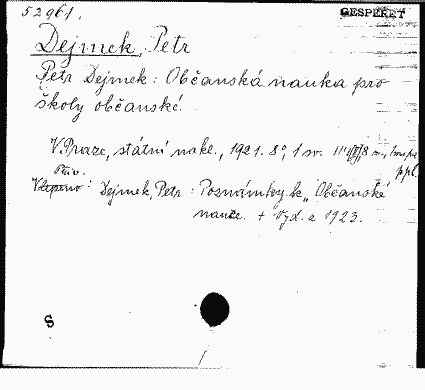 52961.
GESPERRT
Dejmek, Petr
Petr Dejmek: Občanská nauka pro
školy občanské.
V Praze, státní nakl., 1921. 8°, 1 sv.
Přiv.
Vlepeno: Dejmek, Petr: Poznámky k „Občanské
nauce. + Vyd. z 1923.
S